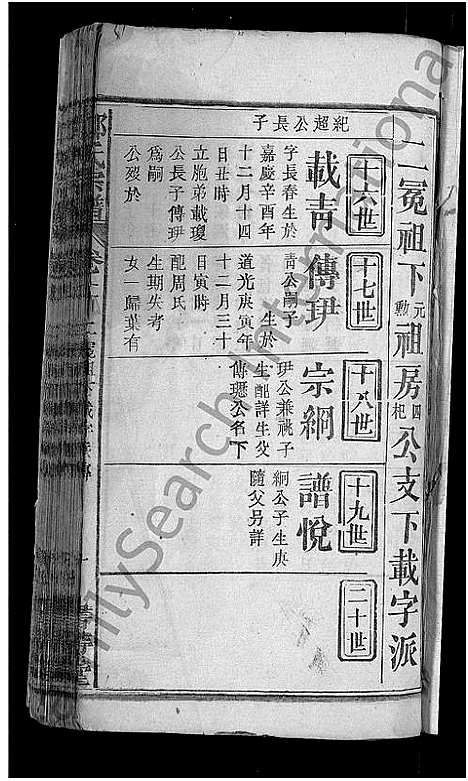 二冕祖下元勲祖房四杞公支下載字派
十六世
十七世
十八世
十九世
二十世
紀超公長子
載青
字長春生於
嘉慶辛酉年
十二月十四
日丑時
立胞弟載瓊
公長子傳玬
爲嗣
公歿於
傳玬
青公嗣子
生於
道光庚寅年
十二月三十
日寅時
配周氏
生期失考
女一歸葉有
宗綱
玬公兼祧子
生配詳生父
傳璁公名下
譜悅
綱公子生庚
隨父另詳
氏宗譜
FamilySearch International